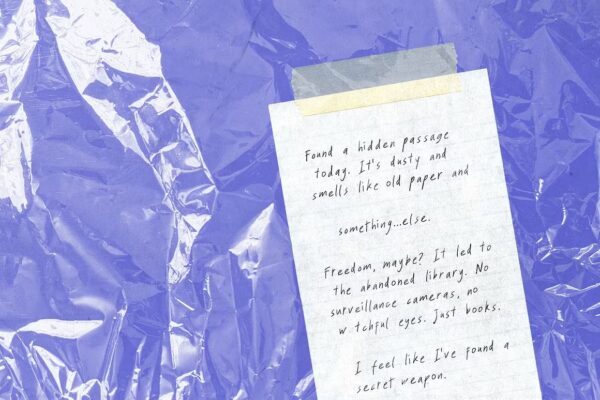 Found a hidden passage
today. It's dusty and
smells like old paper and
something...else.
Freedom, maybe? It led to
the abandoned library. No
surveillance cameras, no
w tchful eyes. Just books.
I feel like I've found a
secret weapon.